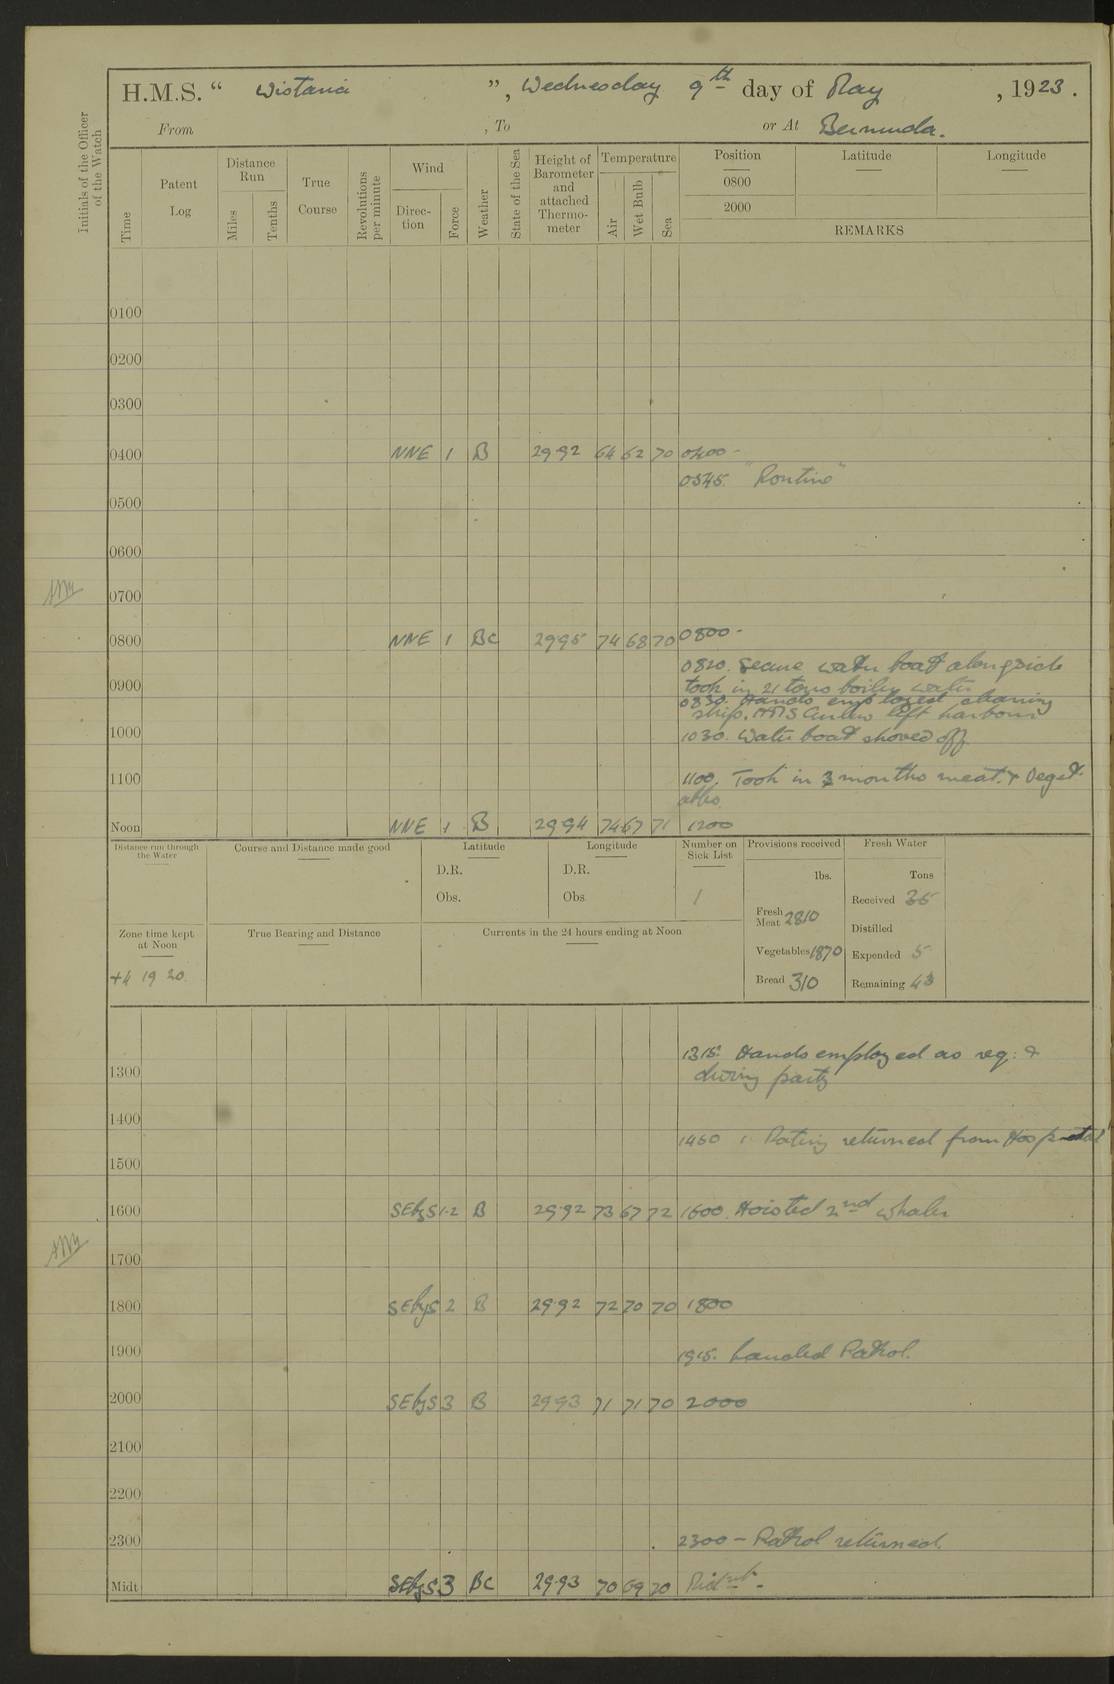 H.M.S. “ Wistaria ”, Wednesday 9th day of May, 1923.
From , To or At Bermuda.
Initials of the Officer of the Watch
Time
Patent Log
Distance Run
Miles
Tenths
True Course
Revolutions per minute
Wind
Direction
Force
Weather
State of the Sea
Height of Barometer and attached Thermometer
Temperature
Air
Wet Bulb
Sea
Position Latitude Longitude
0800
2000
REMARKS
0100
0200
0300
0400 NNE 1 B 29 92 64 62 70 0400 -
0545. "Routine"
0500
0600
0700
0800 NNE 1 BC 29 95 74 68 70 0800 -
0820. Secure water boat alongside
took in 21 tons boiler water
0900
0830. Hands employed cleaning
ship. HMS Curlew left harbour
1000 1030. Water boat shoved off
1100 1100. Took in 3 months meat. & Veget-
ables.
Noon NNE 1 B 29 94 74 67 71 1200
Distance run through the Water
Course and Distance made good
Latitude
D.R.
Obs.
Longitude
D.R.
Obs
Number on Sick List
1
Provisions received
lbs.
Fresh Meat 2810
Vegetables 1870
Bread 310
Fresh Water
Tons
Received 35
Distilled
Expended 5
Remaining 43
Zone time kept at Noon
+4 19 20.
True Bearing and Distance
Currents in the 24 hours ending at Noon
1315. Hands employed as req: &
1300 diving party
1400
1450 1. Rating returned from Hospital
1500
1600 SEbyS 1-2 B 29.92 73 67 72 1600. Hoisted 2nd whaler
1700
1800 SEbyS 2 B 29.92 72 70 70 1800
1900 1915. Landed Patrol.
2000 SEbyS 3 B 29 93 71 71 70 2000
2100
2200
2300 2300 - Patrol returned.
Midt SEbyS 3 BC 29.93 70 69 70 Midnt -